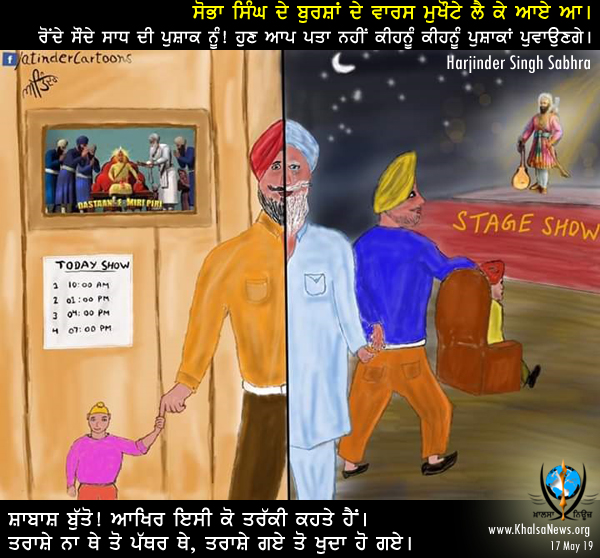 ਸੋਭਾ ਸਿੰਘ ਦੇ ਬੁਰਸ਼ਾਂ ਦੇ ਵਾਰਸ ਮੁਖੌਟੇ ਲੈ ਕੇ ਆਏ ਆ।
ਰੋਂਦੇ ਸੌਦੇ ਸਾਧ ਦੀ ਪੁਸ਼ਾਕ ਨੂੰ! ਹੁਣ ਆਪ ਪਤਾ ਨਹੀਂ ਕੀਹਨੂੰ ਕੀਹਨੂੰ ਪੁਸ਼ਾਕਾਂ ਪੁਵਾਉਣਗੇ।
f JatinderCartoons
Harjinder Singh Sabhra
DASTAAN-E-MIRI PIRI
STAGE SHOW
TODAY SHOW
1 10:00 AM
2 01:00 PM
3 04:00 PM
4 07:00 PM
ਖਾਲਸਾ ਨਿਊਜ਼
www.KhalsaNews.org
17 May 19
ਸ਼ਾਬਾਸ਼ ਬੁੱਤੋ! ਆਖਿਰ ਇਸੀ ਕੋ ਤਰੱਕੀ ਕਹਤੇ ਹੈਂ।
ਤਰਾਸ਼ੇ ਨਾ ਥੇ ਤੋ ਪੱਥਰ ਥੇ, ਤਰਾਸ਼ੇ ਗਏ ਤੋ ਖੁਦਾ ਹੋ ਗਏ।